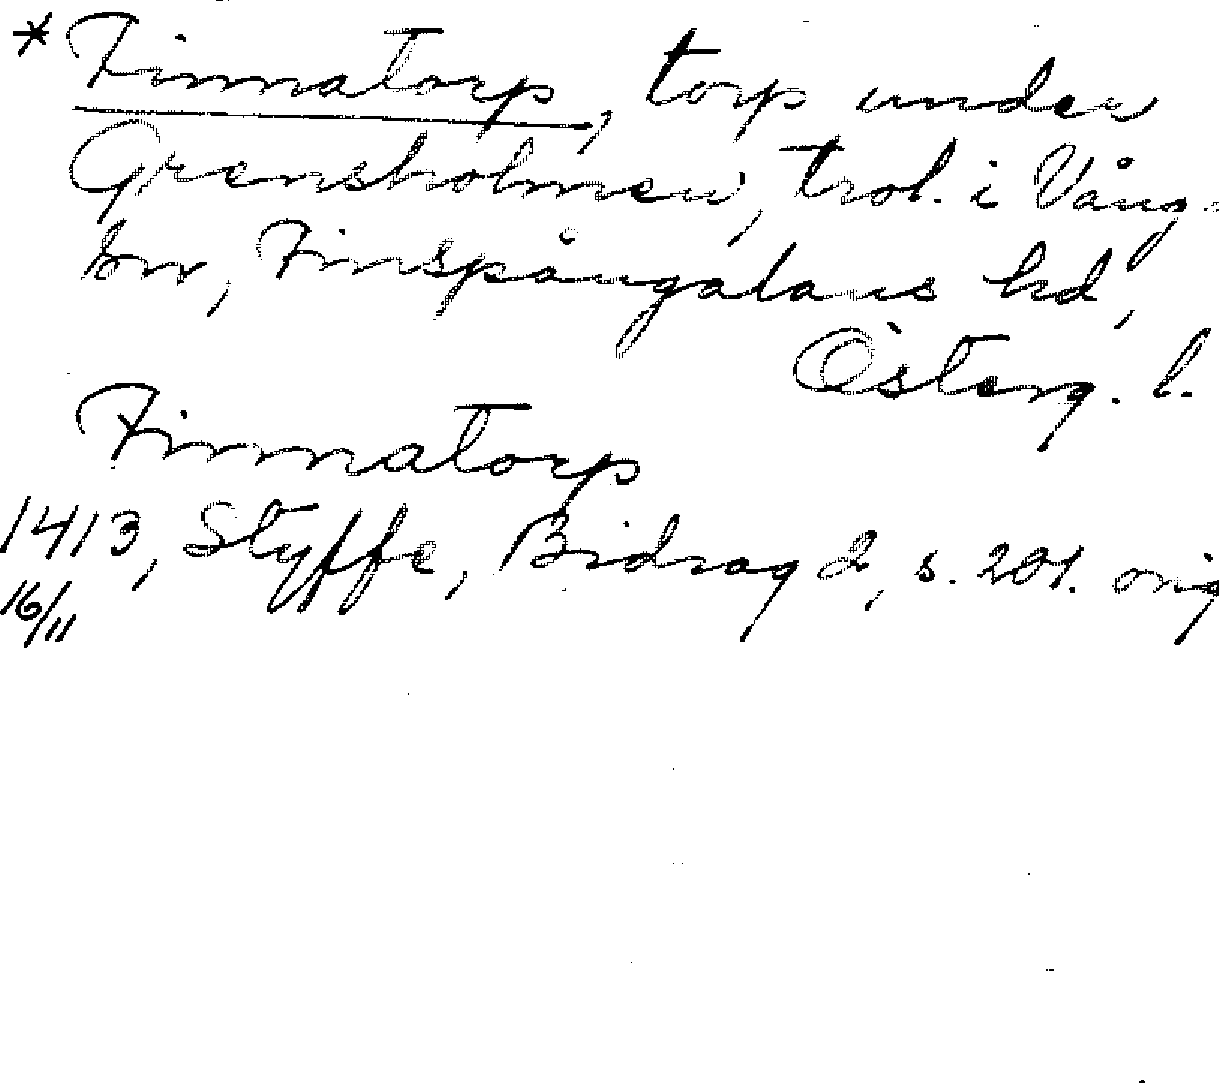 * Finnatorp, torp under
Grensholmen, trol. i Vång-
a sn, Finspångalans hd,
Österg. l.
Finnatorp
1413, Styffe, Bidrag 2, s. 201. orig
16/11